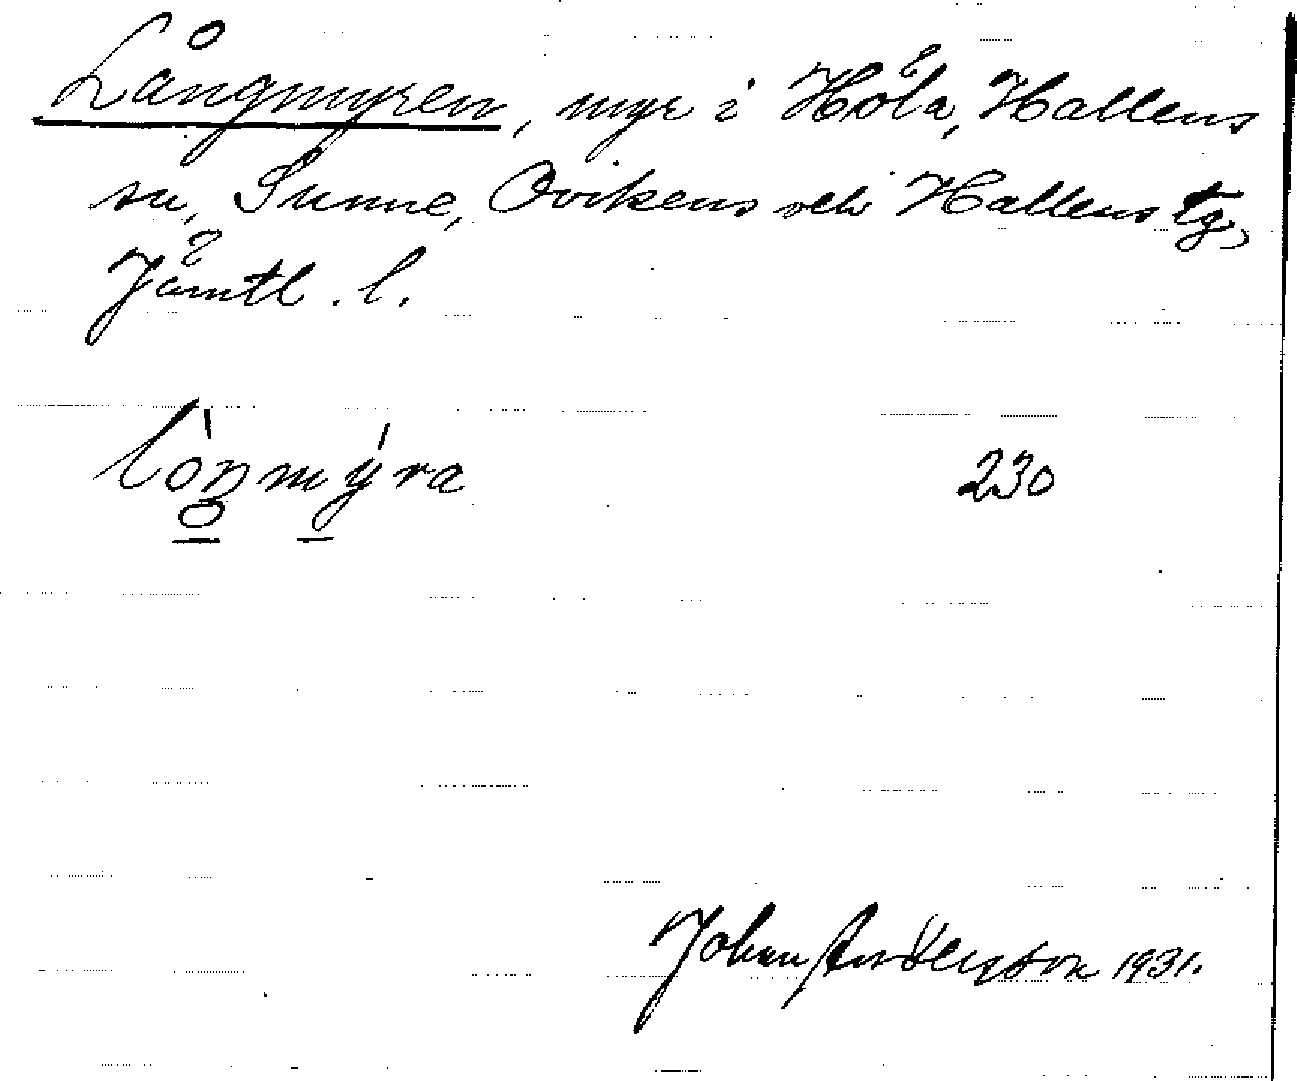 Långmyren, myr i Höla, Hallens
sn, Sunne, Ovikens och Hallens tg,
Jämtl. l.
230
Johan Anderson 1931.